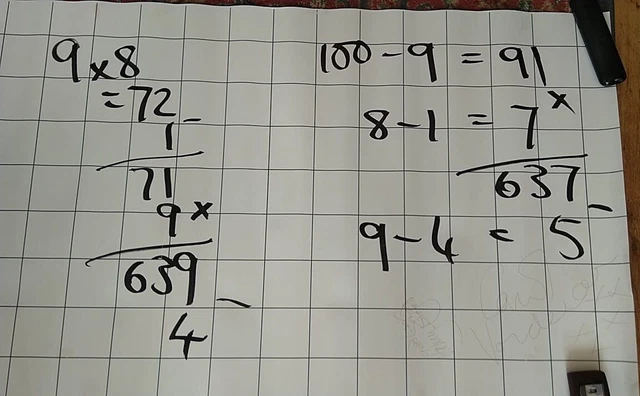 9 x 8
= 72 -
1
71
9 x
639 -
4
100 - 9 = 91
8 - 1 = 7 x
637 -
9 - 4 = 5